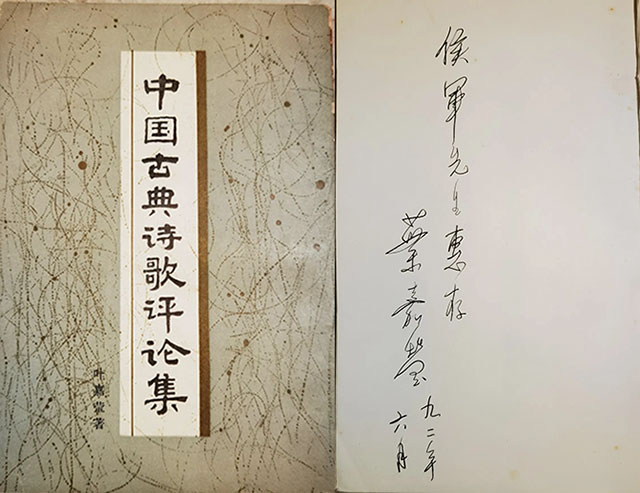 中国古典诗歌评论集
叶嘉莹著
侯軍先生惠存
葉嘉瑩
九二年
六月